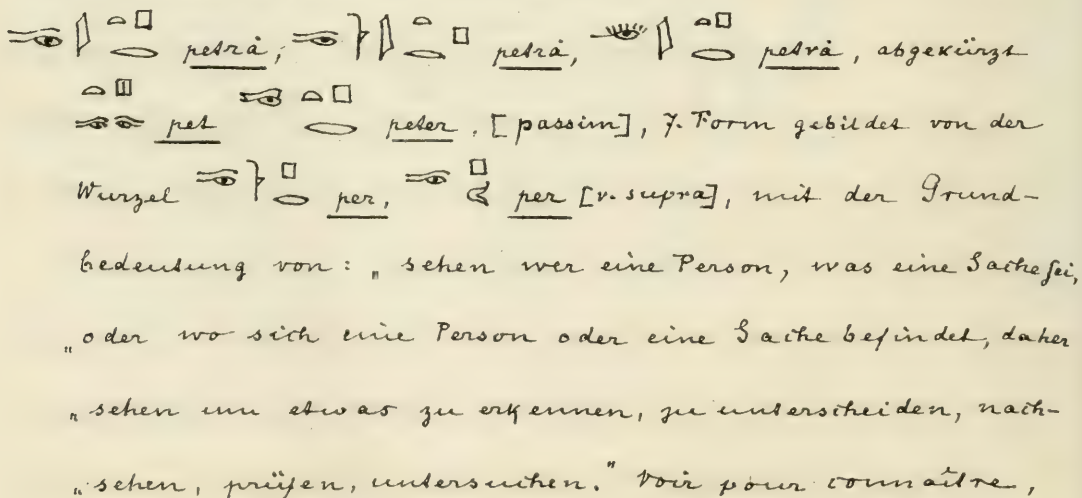 petrȧ, petrȧ, petrȧ, abgekürzt
pet peter. [passim], 7. Form gebildet von der
Wurzel per, per [v. supra], mit der Grund-
bedeutung von: „ sehen wer eine Person, was eine Sache sei,
„ oder wo sich eine Person oder eine Sache befindet, daher
„ sehen um etwas zu erkennen, zu unterscheiden, nach-
„ sehen, prüfen, untersuchen." Voir pour connaître,